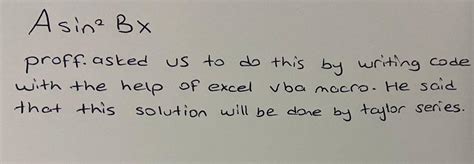 A sin² Bx
proff. asked us to do this by writing code
with the help of excel vba macro. He said
that this solution will be done by taylor series.